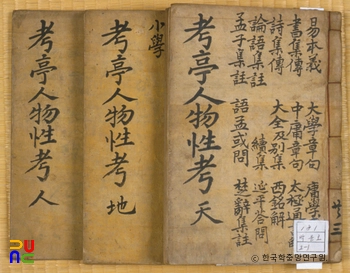 共三
易本義 大學章句 庸學
書集傳 中庸章句 太極通
詩集傳 大全及別集 西銘解
論語集註 續集 延平答問
孟子集註 語孟或問 楚辭集註
考亭人物性考 天
小學
考亭人物性考 地
考亭人物性考 人
© 한국학중앙연구원